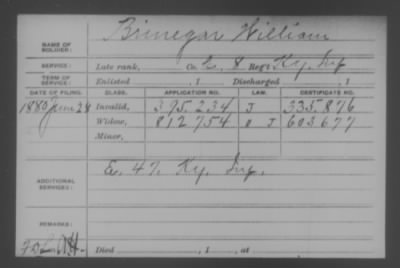 NAME OF SOLDIER: Binegar William
SERVICE: Late rank, Co. E, 8 Reg't Ky. Inf
TERM OF SERVICE: Enlisted , 1 Discharged , 1
DATE OF FILING. CLASS. APPLICATION NO. LAW. CERTIFICATE NO.
1880 June 24 Invalid, 395.234 J 335.876
Widow, 812754 O J 603677
Minor,
ADDITIONAL SERVICES: E. 47. Ky. Inf.
REMARKS:
Died , 1 , at